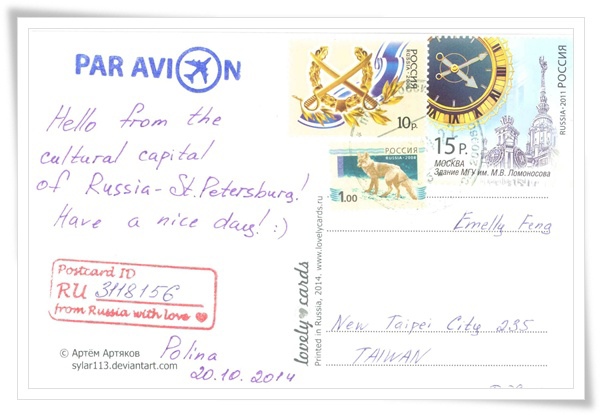 PAR AVION
Hello from the
cultural capital
of Russia - St. Petersburg!
Have a nice day! :)
Postcard ID
RU 3118156
from Russia with love
© Артём Артяков
sylar113.deviantart.com
Polina
20.10.2014
lovely cards
Printed in Russia, 2014. www.lovelycards.ru
РОССИЯ
10р.
РОССИЯ
RUSSIA • 2008
1.00
РОССИЯ
RUSSIA•2011
15 Р.
МОСКВА
Здание МГУ им. М.В. Ломоносова
Emelly Feng
New Taipei City 235
TAIWAN